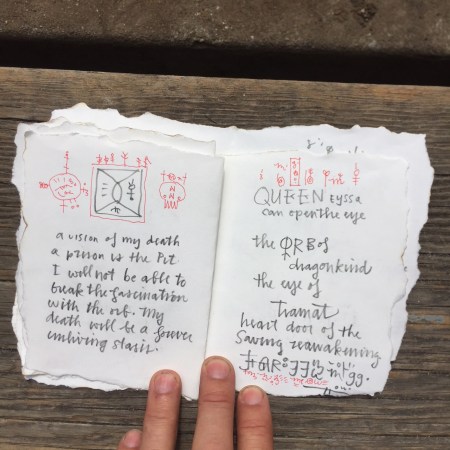 a vision of my death
a prison is the Pit
I will not be able to
break the fascination
with the orb. My
death will be a
stasis.
QUEEN Eyssa
can open the eye
the ORB of
dragonkind
the eye of
Tiamat
heart door of the
reawakening